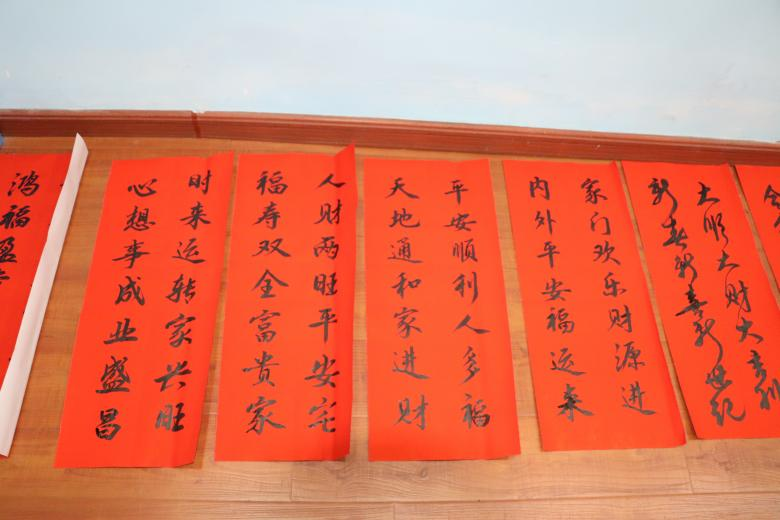 大顺大财大吉利
新春新喜新世纪
家门欢乐财源进
内外平安福运来
平安顺利人多福
天地通和家进财
人财两旺平安宅
福寿双全富贵家
时来运转家兴旺
心想事成业盛昌
鸿福盈